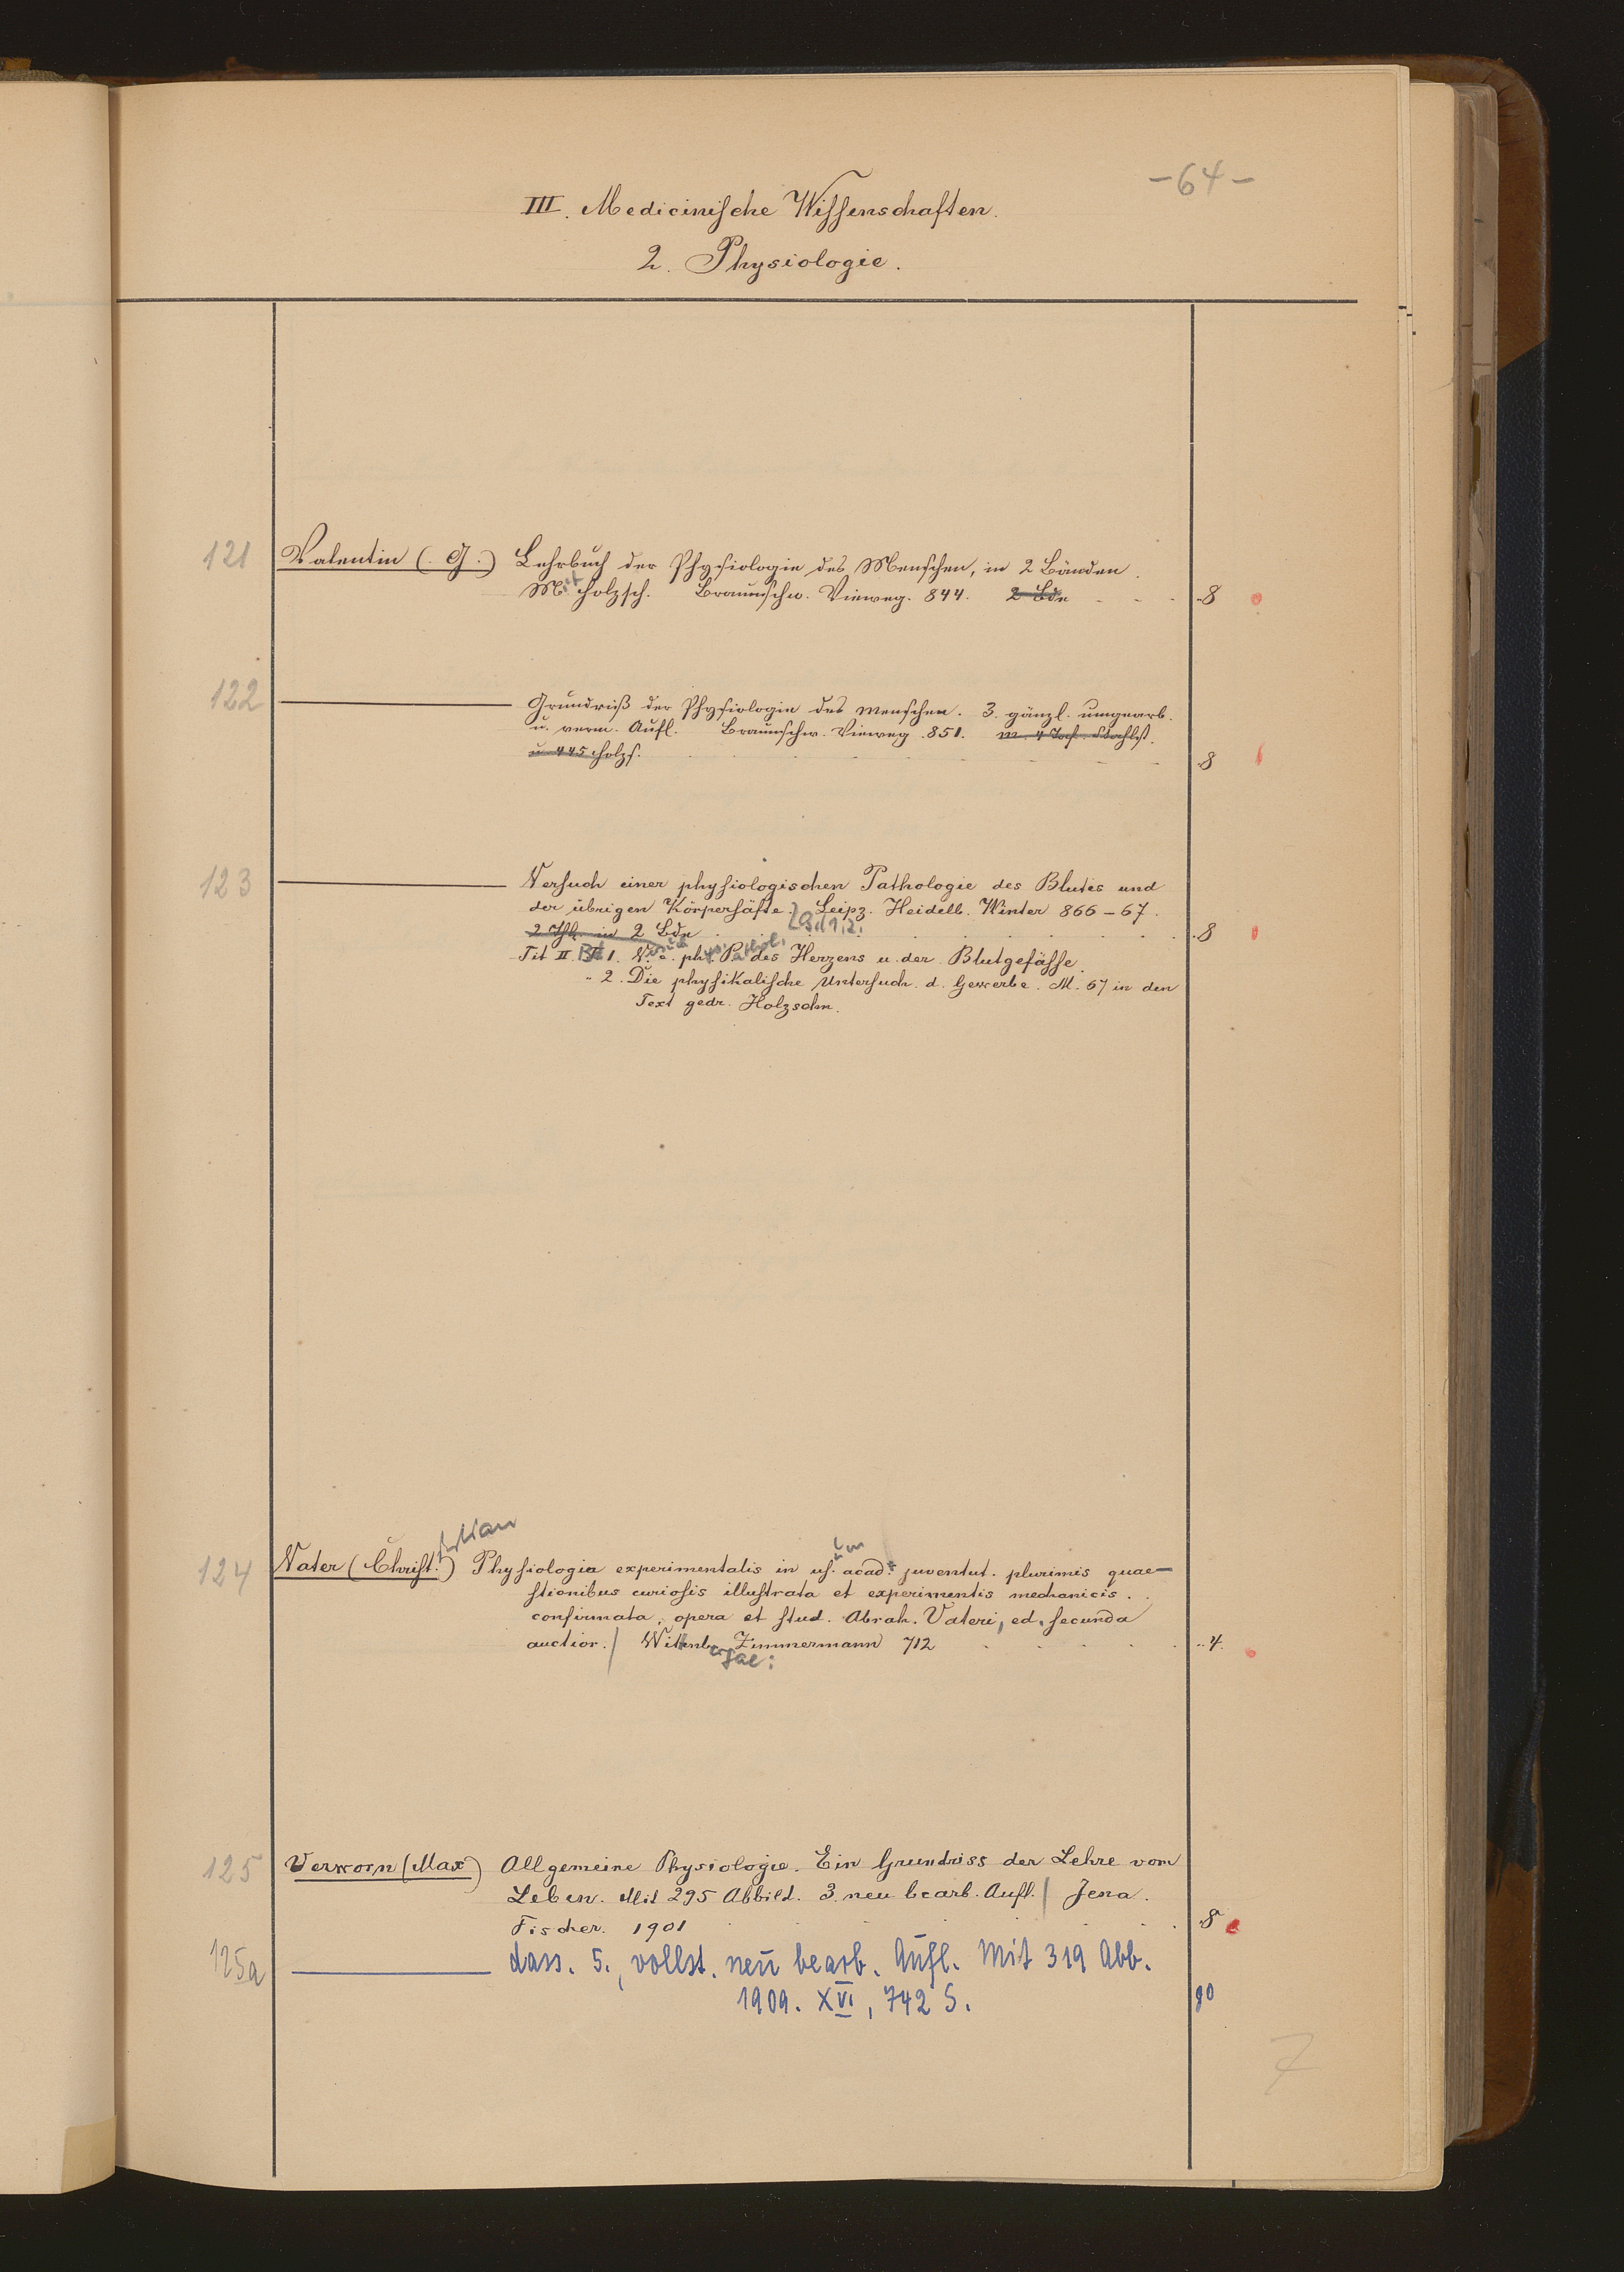 -64-
III. Medicinische Wissenschaften.
2. Physiologie.
121 Valentin (G.) Lehrbuch der Physiologie des Menschen, in 2 Bänden.
Mit Holzsch. Braunschw. Vieweg. 844. 2 Bde 8
122 Grundriß der Physiologie des Menschen. 3. gänzl. umgearb.
u. verm. Aufl. Braunschw. Vieweg. 851. m. 4 Taf. Stahlst.
u 445 Holzs. 8
123 Versuch einer physiologischen Pathologie des Blutes und
der übrigen Körpersäfte. Leipz. Heidelb. Winter 866-67.
2 Thl. in 2 Bde Bd 1, 2. 8
Tit II Bd 1. V. e. phys. Pathol. des Herzens u. der Blutgefässe
" 2. Die physikalische Untersuch. d. Gewebe. M. 67 in den
Text gedr. Holzschn.
124 Vater (Christian) Physiologia experimentalis in usum acad. juventut. plurimis quae-
stionibus curiosis illustrata et experimentis mechanicis
confirmata, opera et stud. Abrah. Vateri, ed. secunda
auctior. Wittenbergae: Zimmermann 712 4.
125 Verworn (Max) Allgemeine Physiologie. Ein Grundriss der Lehre vom
Leben. Mit 295 Abbild. 3. neu bearb. Aufl. Jena.
Fischer. 1901 8
125a dass. 5., vollst. neu bearb. Aufl. Mit 319 Abb.
1909. XVI, 742 S. 80
7